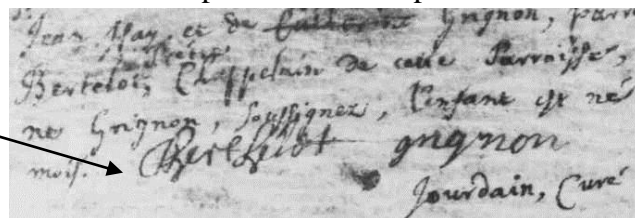 Jean May, et de Catherine Grignon, parr
prêtre
Bertelot, Chappelain de cette Parroisse,
ne Grignon, Soussignez, l'enfant est né
mois. Berthelot grignon
Jourdain, Curé